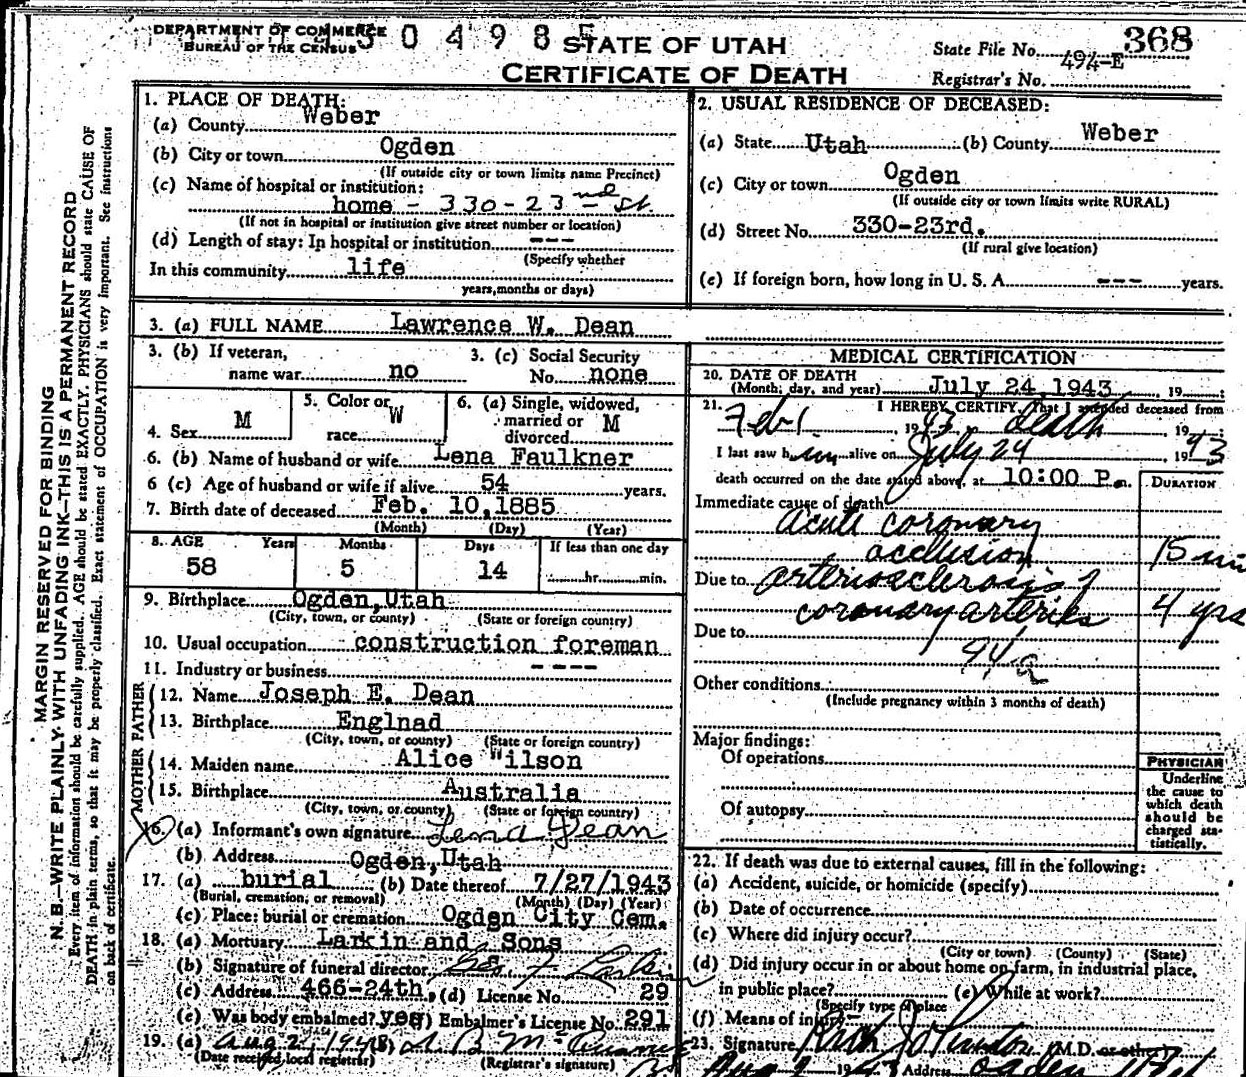 DEPARTMENT OF COMMERCE
BUREAU OF THE CENSUS
3 0 4 9 8 5
STATE OF UTAH
CERTIFICATE OF DEATH
368
State File No. 494-E
Registrar's No.
MARGIN RESERVED FOR BINDING
N. B.—WRITE PLAINLY WITH UNFADING INK—THIS IS A PERMANENT RECORD
Every item of information should be carefully supplied. AGE should be stated EXACTLY. PHYSICIANS should state CAUSE OF
DEATH in plain terms, so that it may be properly classified. Exact statement of OCCUPATION is very important. See instructions
on back of certificate.
1. PLACE OF DEATH:
(a) County Weber
(b) City or town Ogden
(If outside city or town limits name Precinct)
(c) Name of hospital or institution:
home - 330-23 nd St.
(If not in hospital or institution give street number or location)
(d) Length of stay: In hospital or institution ---
(Specify whether
In this community life
years, months or days)
2. USUAL RESIDENCE OF DECEASED:
(a) State Utah (b) County Weber
(c) City or town Ogden
(If outside city or town limits write RURAL)
(d) Street No. 330-23rd.
(If rural give location)
(e) If foreign born, how long in U. S. A. --- years.
3. (a) FULL NAME Lawrence W. Dean
3. (b) If veteran, name war no
3. (c) Social Security No. none
4. Sex M
5. Color or race W
6. (a) Single, widowed, married or divorced M
6. (b) Name of husband or wife Lena Faulkner
6 (c) Age of husband or wife if alive 54 years.
7. Birth date of deceased Feb. 10,1885
(Month) (Day) (Year)
8. AGE Years Months Days If less than one day
58 5 14 hr. min.
9. Birthplace Ogden,Utah
(City, town, or county) (State or foreign country)
10. Usual occupation construction foreman
11. Industry or business ----
FATHER
12. Name Joseph E. Dean
13. Birthplace Englnad
(City, town, or county) (State or foreign country)
MOTHER
14. Maiden name Alice Wilson
15. Birthplace Australia
(City, town, or county) (State or foreign country)
16. (a) Informant's own signature Lena Dean
(b) Address Ogden,Utah
17. (a) burial (b) Date thereof 7/27/1943
(Burial, cremation, or removal) (Month) (Day) (Year)
(c) Place: burial or cremation Ogden City Cem.
18. (a) Mortuary Larkin and Sons
(b) Signature of funeral director
(c) Address 466-24th. (d) License No. 29
(e) Was body embalmed? yes (f) Embalmer's License No. 291
19. (a) Aug 2, 1943
(Date received local registrar) (Registrar's signature)
MEDICAL CERTIFICATION
20. DATE OF DEATH
(Month, day, and year) July 24,1943 , 19
21. I HEREBY CERTIFY, That I attended deceased from
Feb 1, 1943 death, 19
I last saw him alive on July 24 1943
death occurred on the date stated above, at 10:00 P.m.
DURATION
Immediate cause of death
acute coronary
occlusion 15 min
Due to arteriosclerosis of
coronary arteries 4 yrs
Due to
94a
Other conditions
(Include pregnancy within 3 months of death)
Major findings:
Of operations
Of autopsy
PHYSICIAN
Underline
the cause to
which death
should be
charged sta-
tistically.
22. If death was due to external causes, fill in the following:
(a) Accident, suicide, or homicide (specify)
(b) Date of occurrence
(c) Where did injury occur?
(City or town) (County) (State)
(d) Did injury occur in or about home on farm, in industrial place,
in public place? (e) While at work?
(Specify type of place
(f) Means of injury
23. Signature (M.D. or other)
1943 Address Ogden